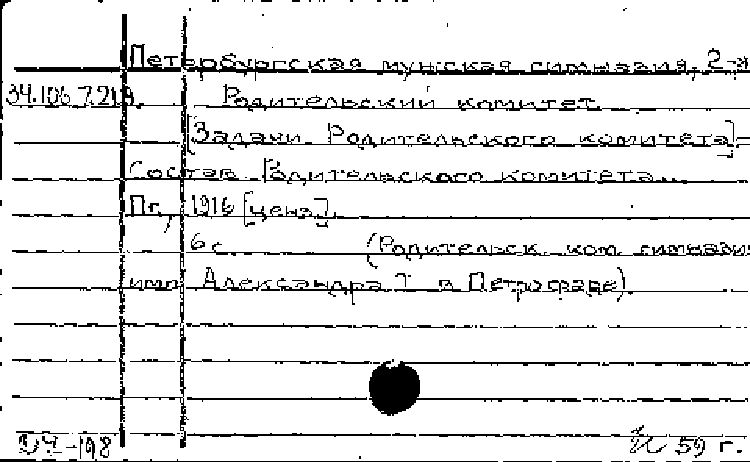 Петербургская мужская гимназия, 2-я
34.106.7.21
Родительский комитет.
[Задачи Родительского комитета].-
Состав Родительского комитета..
Пг., 1916 [ценз].
6 с. (Родительск. ком. гимназии
имп. Александра I в Петрограде).
-198
59 г.